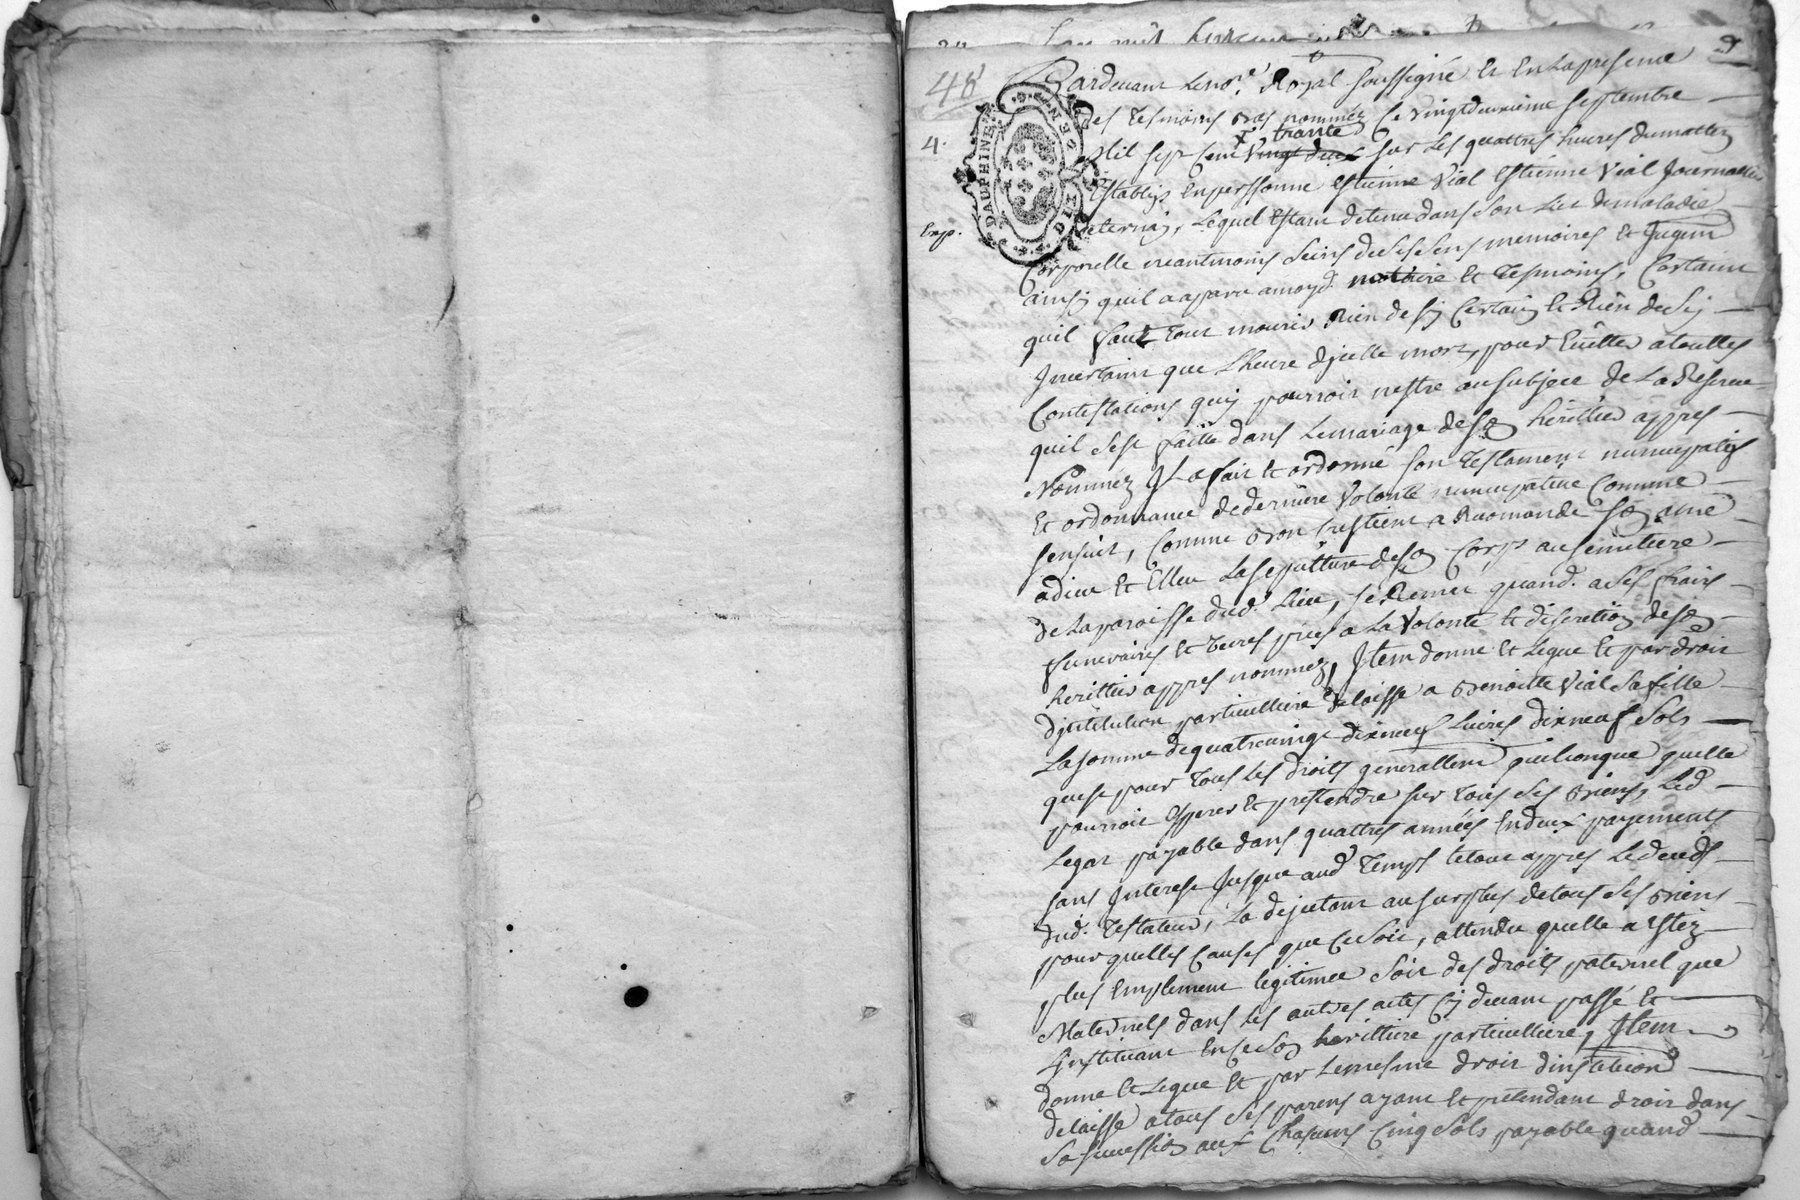 48
4.
Exp.
DAUPHINE
Pardevant le no.re Royal soussigné et En la presence
des tesmoins bas nommés ce vingt deuxieme septembre
trante
Mil sept Cent vingt deux sur les quattres heures du mattin
Establys En perssonne Estienne Vial Estienne Vial Journallier
de ternay, Lequel Estant detenu dans son Lict de maladie
Corporelle neantmoins Seins de ses sens memoires et Jugem
ainsy quil a aparu a moyd. notaire et tesmoins, Certaint
quil faut tout mourir Rien de sy Certain et Rien de sy
Jncertaint que Lheure dycelle mort, pour Evitter a touttes
Contestations quy pourroit nestre au subject de La Reserve
quil sest faitte dans Le mariage de son herittier appres
Nommez Jl a fait et ordonné son testament nuncupatif
Et ordonnance de derniere Volonté nuncupative Comme
sensuit, Comme bon Crestient a Recomandé son ame
a dieu et Elleu La sepulture de son Corps au semettiere
de La paroisse dud. Lieu, se Remet quand. a ses frais
funeraires et œuvres pies a La Volonté et discretion de son
herittier appres nommez, Jtem donne et Legue et par droit
djnstitution particulliere delaisse a Benoitte Vial sa fille
La somme de quatrevingt dixneuf Livres dixneuf sols
quest pour tous Les droits generallem quelconque quelle
pourroit Esperer et prestendre sur tous ses Biens, Led
Legat payable dans quattres années En deux payements
sans Jnterest Jusque aud. temps Le tout appres Le deceds
dud. testateur, La dejettant au surplus de tous ses Biens
pour quelles Causes que Ce soit, attendu quelle a Estéz
plus Emplement legitimee soit des droits paternel que
Maternels dans Les autres actes Cy devant passé Et
Linstituant En ce son herittiere particulliere, Jtem
donne et Legue et par Le mesme droit dinstitution
delaisse a tous ses parens ayant et pretendant droit dans
sa succession aux Chascuns Cinq sols payable quand